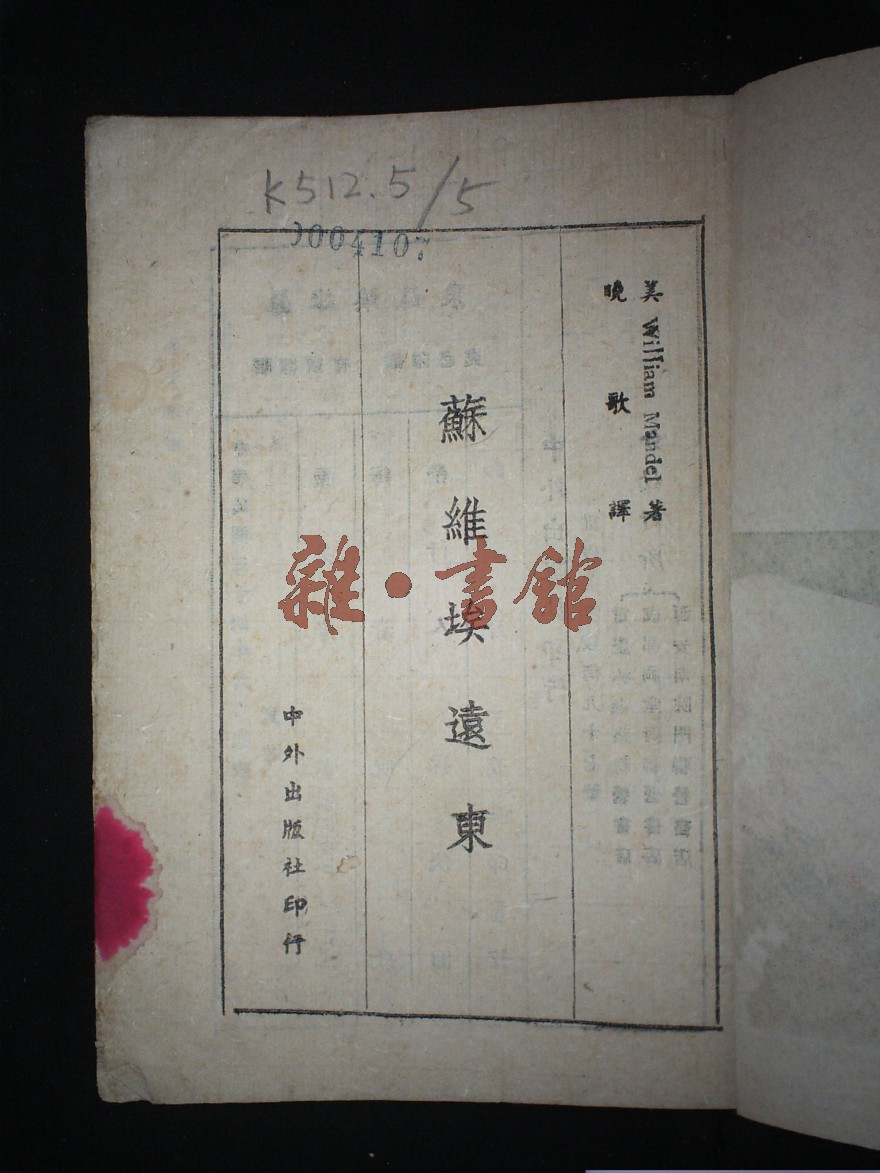 K512.5/5
0004107
美 William Mandel 著
晚歌譯
蘇維埃遠東
中外出版社印行
雜·書館